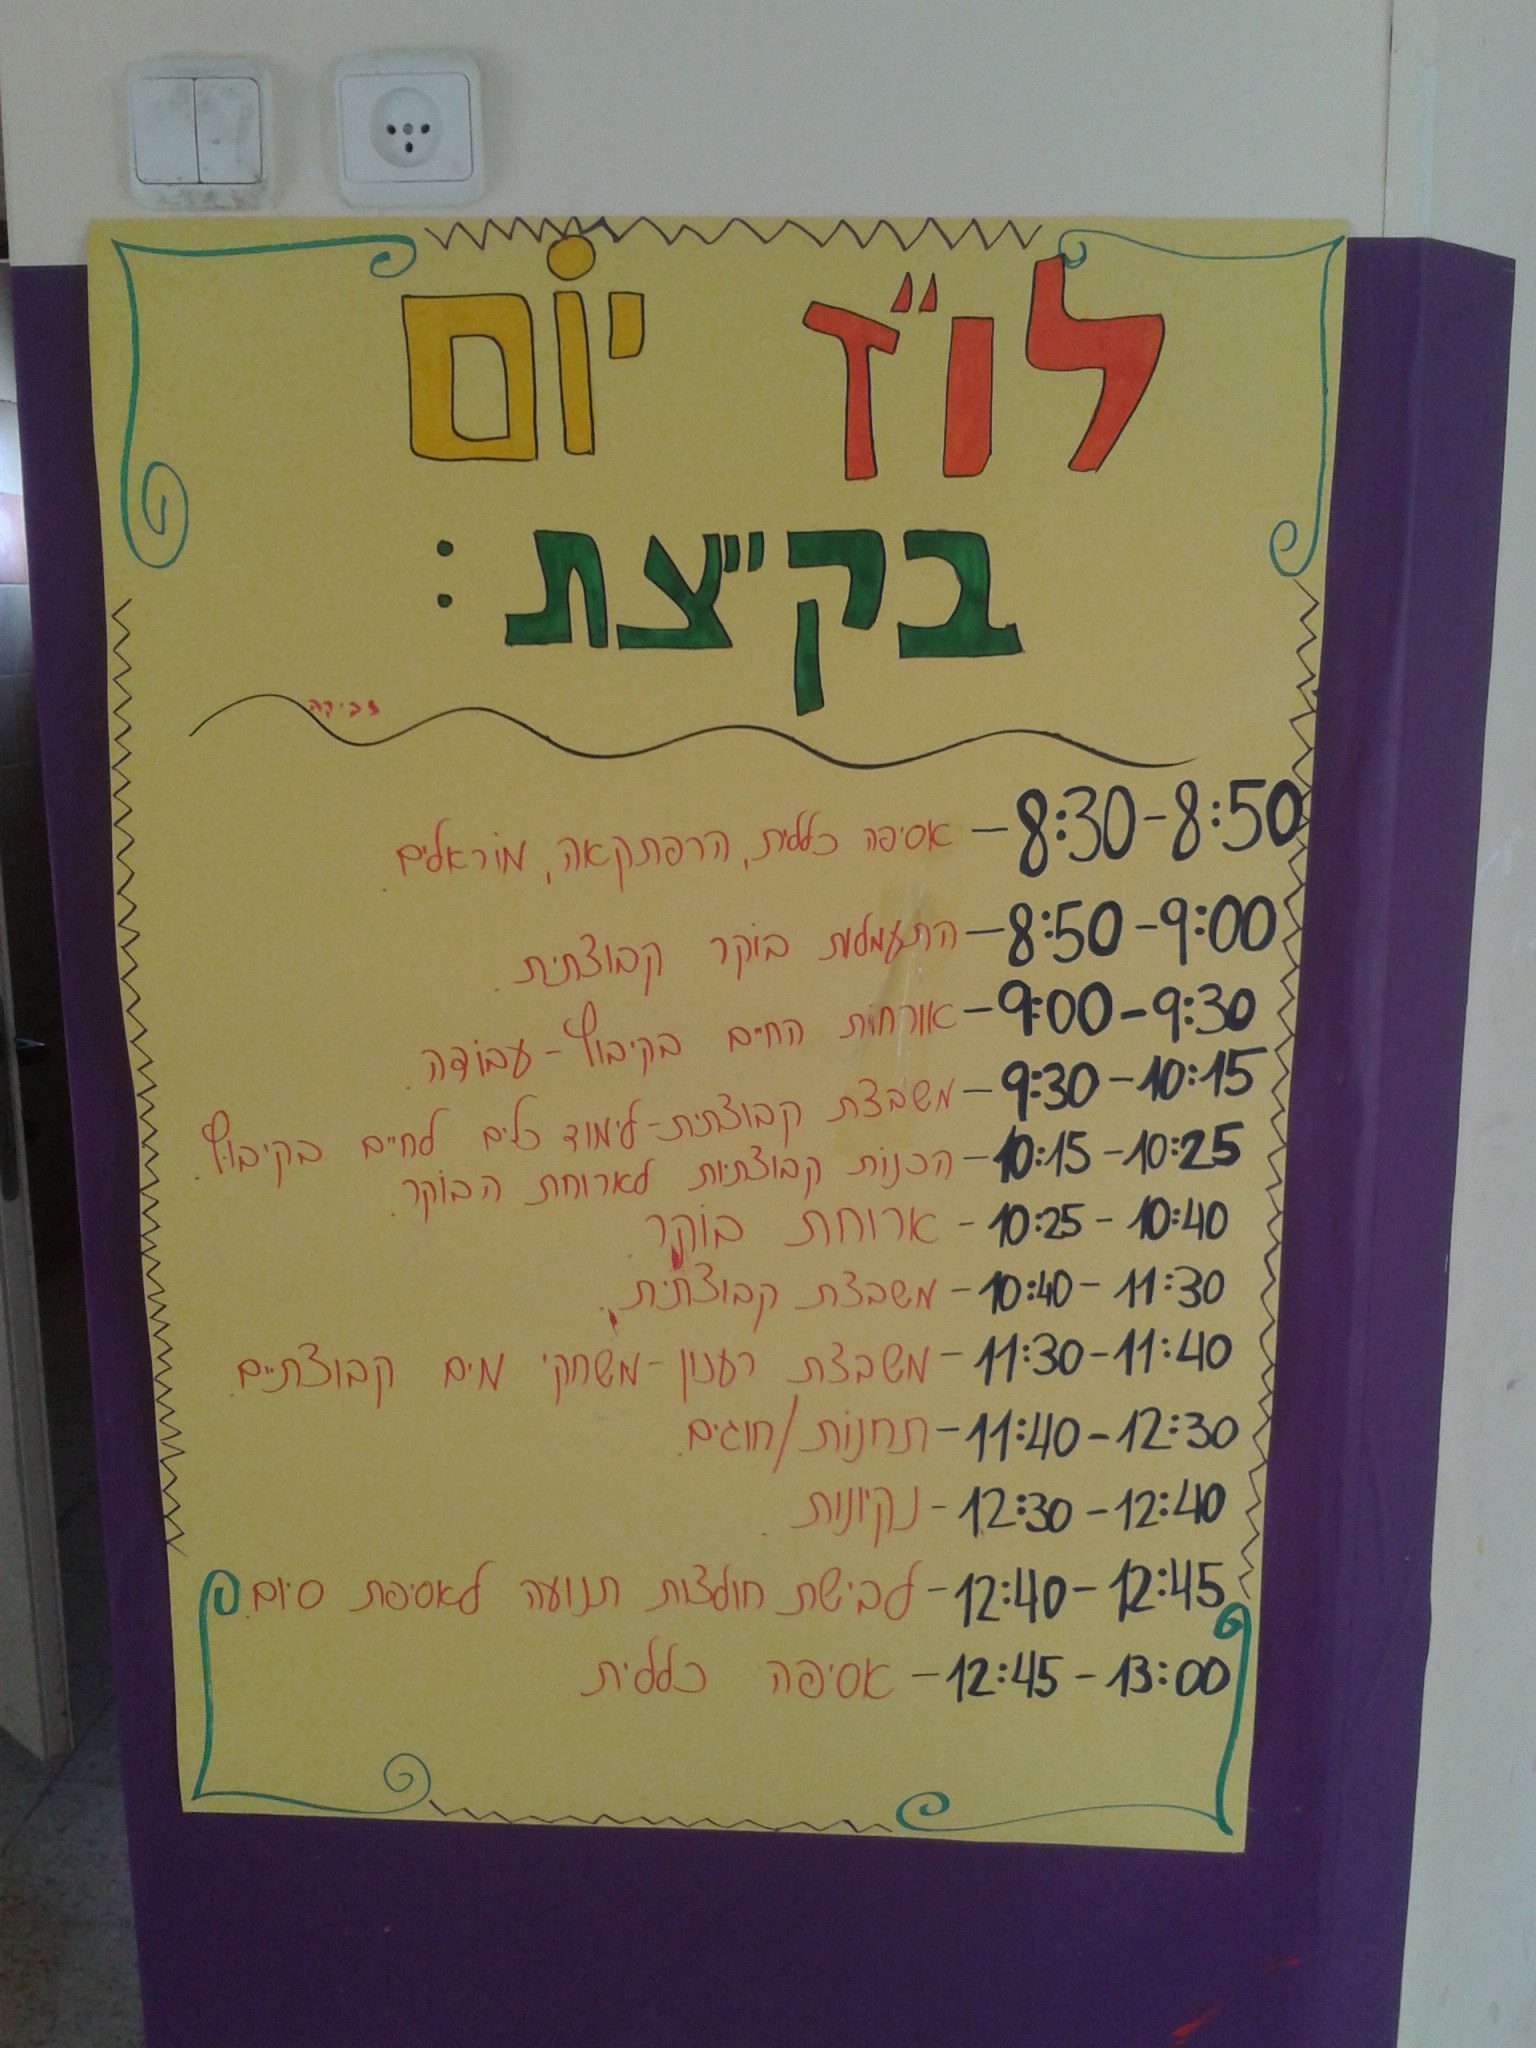 לו"ז יום
בק"צת:
צביקה
8:30-8:50 – אסיפה כללית, הרפתקאה, מוראלים.
8:50-9:00 – התעמלות בוקר קבוצתית.
9:00-9:30 – אורחות החיים בקיבוץ - עבודה.
9:30-10:15 – משבצת קבוצתית - לימוד כלים לחיים בקיבוץ.
10:15-10:25 – הכנות קבוצתיות לארוחת הבוקר.
10:25-10:40 - ארוחת בוקר.
10:40-11:30 - משבצת קבוצתית.
11:30-11:40 – משבצת רענון - משחקי מים קבוצתיים.
11:40-12:30 – תחנות/חוגים.
12:30-12:40 - נקיונות.
12:40-12:45 – לבישת חולצות תנועה לאסיפת סיום.
12:45-13:00 – אסיפה כללית